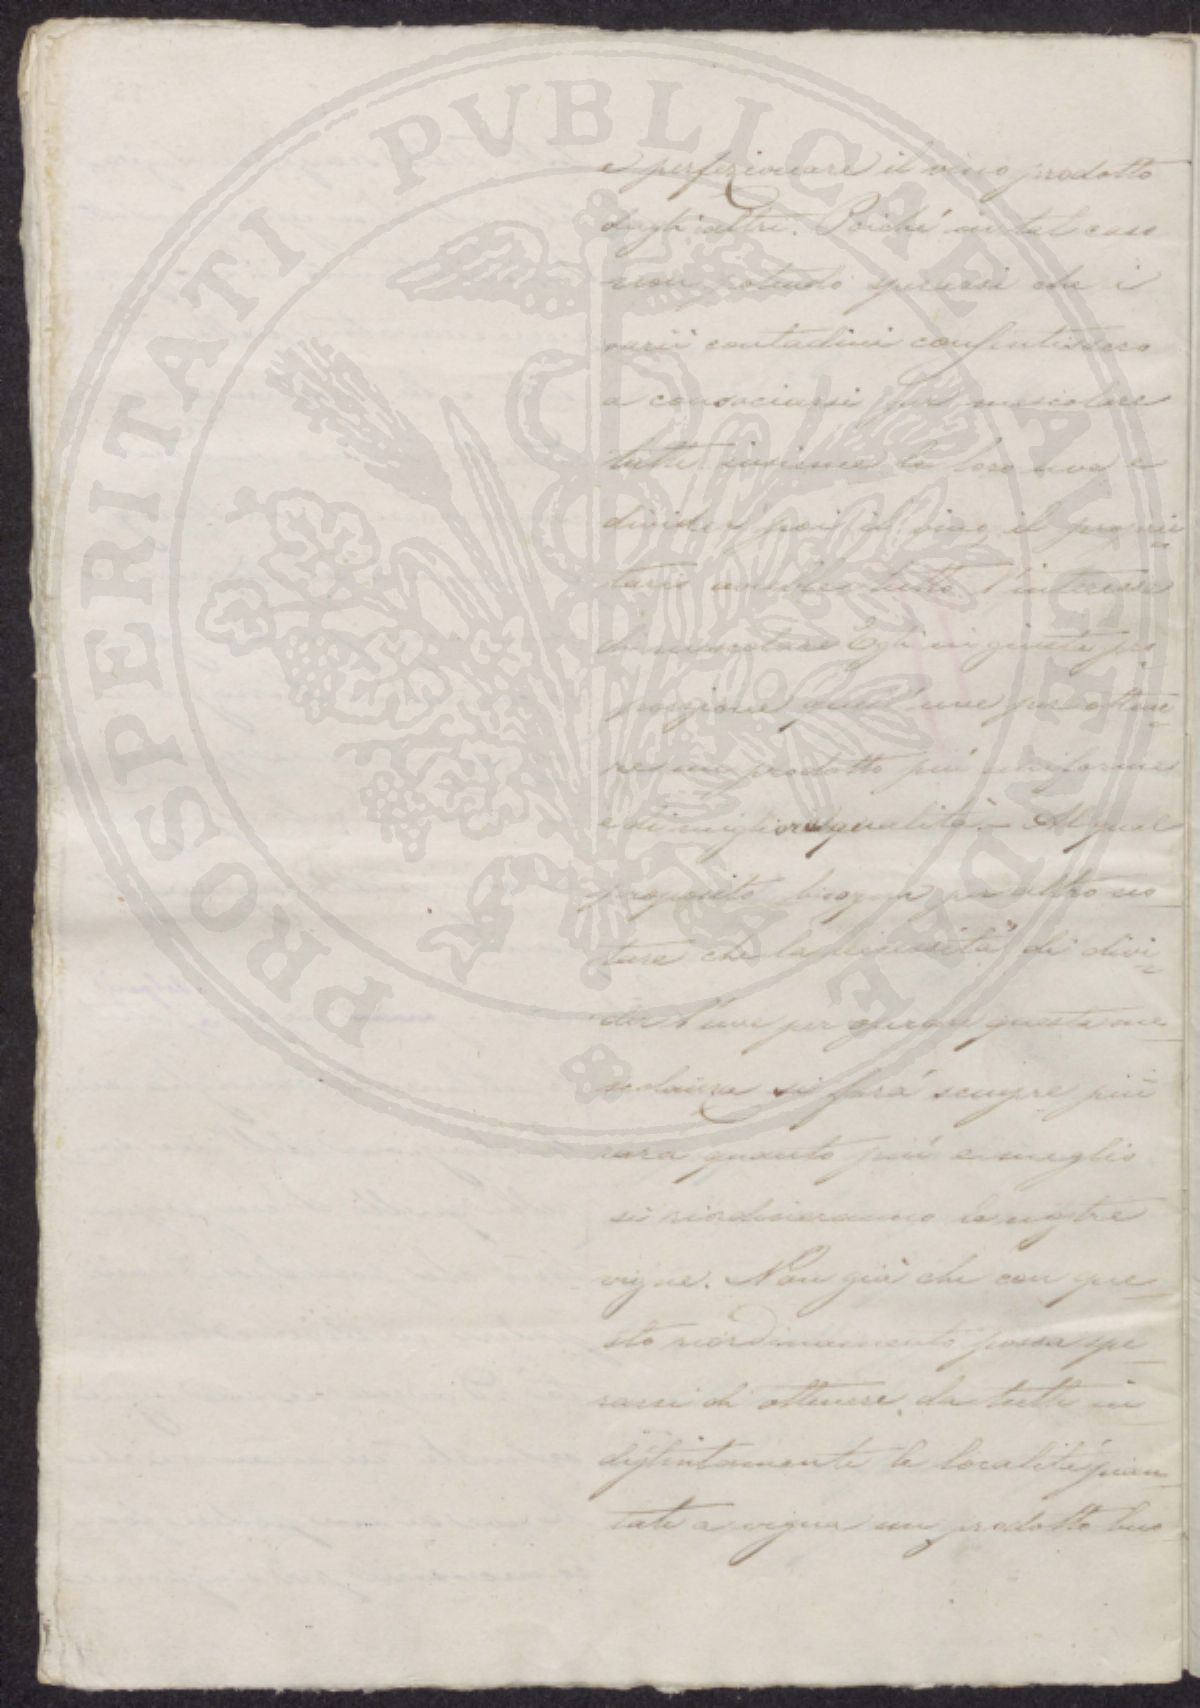 PROSPERITATI PUBLICAE AUGENDAE
e perfezionare il vino prodotto
dagli altri. Poiché in tal caso
non potendo sperarsi che i
varii contadini consentissero
a consociarsi per mescolare
tutti insieme le loro uve e
divider poi il vino, il proprie
tario avrebbe tutto l'interesse
di mescolare Egli in giusta pro
porzione quest'uve per ottene
re un prodotto più uniforme
e di migliore qualità. - Al qual
proposito bisogna per altro no
tare che la necessità di divi
der l'uve per operare questa me
scolanza si farà sempre più
rara quanto più e meglio
si riordineranno le nostre
vigne. Non già che con que
sto riordinamento possa spe
rarsi di ottenere da tutte in
distintamente le località pian
tate a vigna un prodotto buo